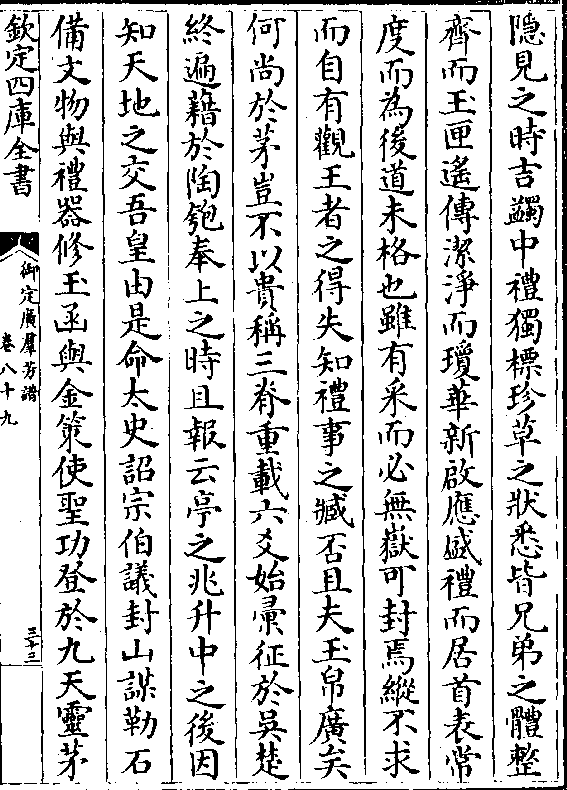 隠見之時吉蠲中禮獨標珍草之狀悉皆兄弟之體整
齊而玉匣遙傳潔淨而瓊華新啟應盛禮而居首表常
度而為後道未格也雖有采而必無嶽可封焉縱不求
而自有觀王者之得失知禮事之臧否且夫玉帛廣矣
何尚於茅豈不以貴稱三脊重載六爻始彚征於吳楚
終遍藉於陶匏奉上之時且報云亭之兆升中之後因
知天地之交吾皇由是命太史詔宗伯議封山謀勒石
備文物與禮器修玉函與金策使聖功登於九天靈茅
欽定四庫全書
御定廣羣芳譜
卷八十九
三十三